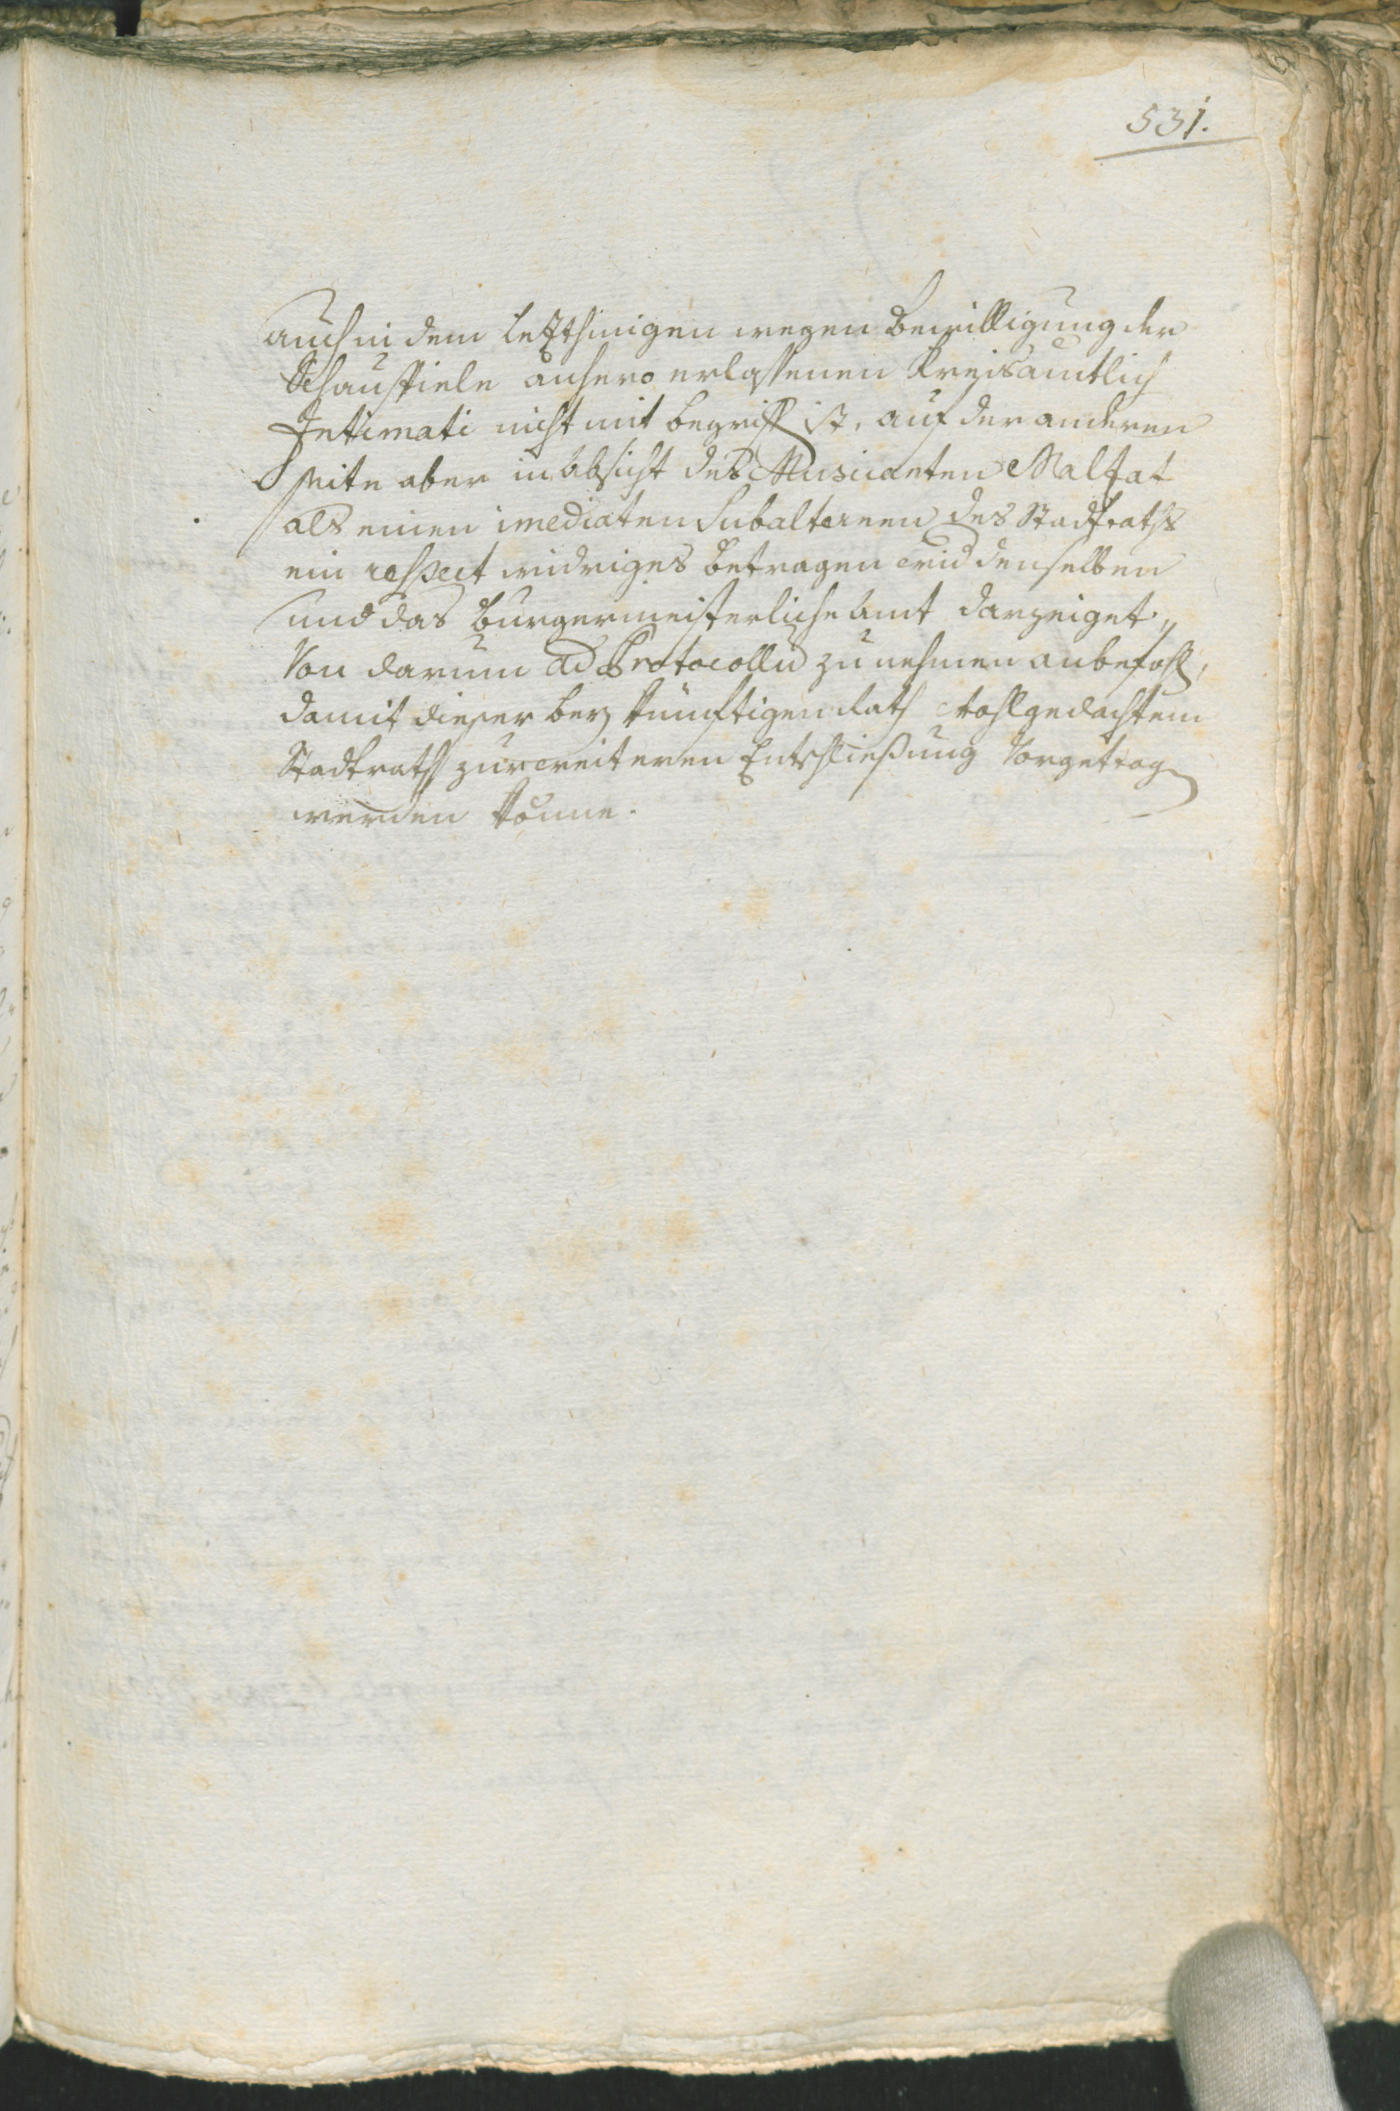 531.
auch in dem lezthinigen wegen Bewilligung der
Schauspiele anhero erlassenen Kreisämtlich
Intimati nicht mit begriff ist, auf der anderen
Seite aber in Absicht des Musicanten Malfat
als einen imediaten Subalternen des Stadtraths
ein respect widriges Betragen wid denselben
und das Burgermeisterliche Amt darzeiget.,,
Von darum ad Protocollu zu nehmen anbefohl,
damit dieser bey künftigen Rath wohlgedachtem
Stadtrath zur weiteren Entschließung Vorgetrag
werden könne.